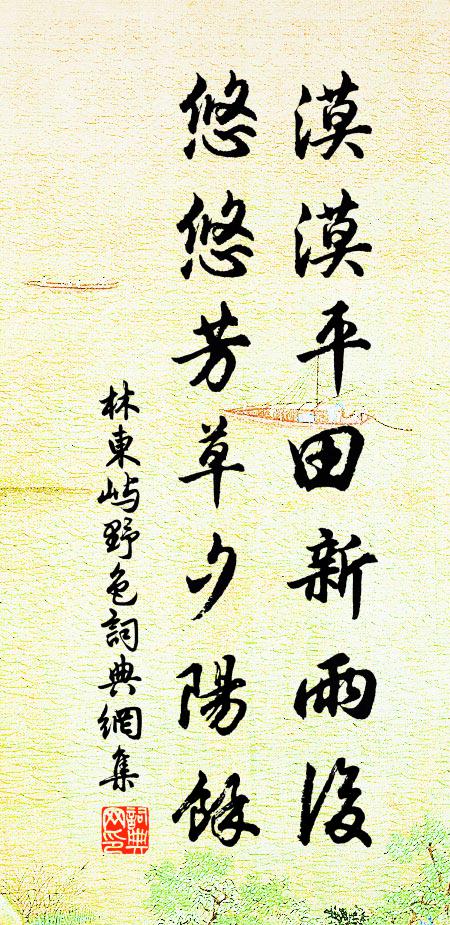 漠漠平田新雨後
悠悠芳草夕陽餘
林東嶼野色詞典網集
詞典網印